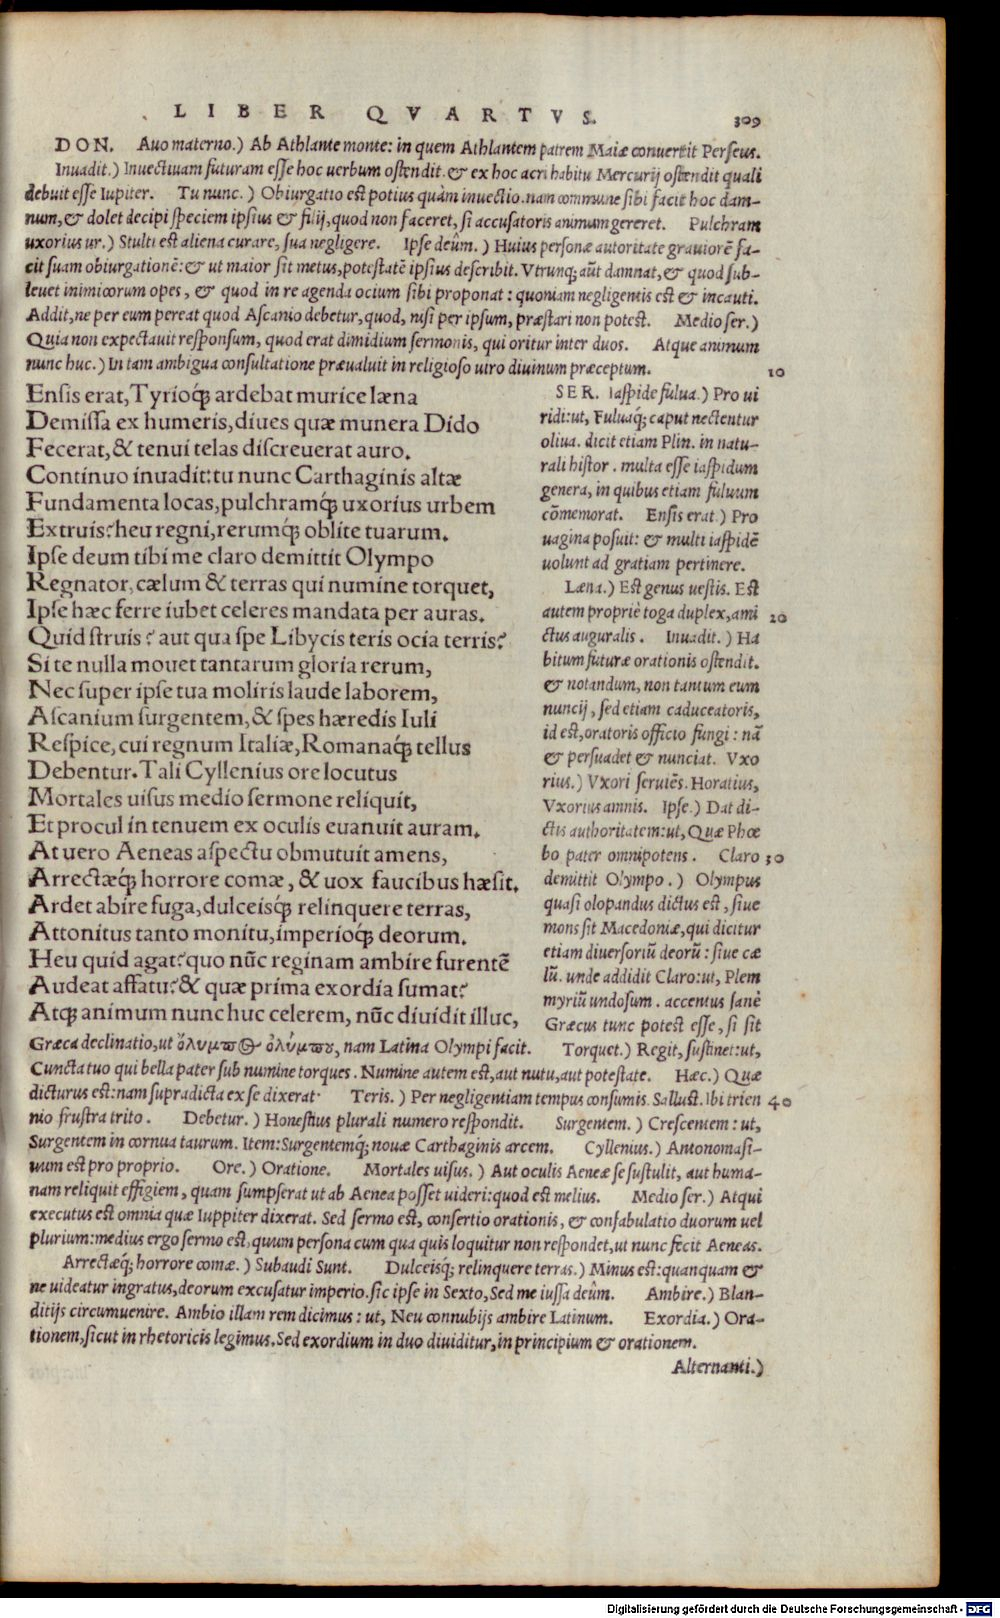 LIBER QVARTVS. 309
DON. Auo materno.) Ab Athlante monte: in quem Athlantem patrem Maiæ conuertit Perseus.
Inuadit.) Inuectiuam futuram esse hoc uerbum ostendit. & ex hoc acri habitu Mercurij ostendit quali
debuit esse Iupiter. Tu nunc.) Obiurgatio est potius quàm inuectio. nam commune sibi facit hoc dam-
num, & dolet decipi speciem ipsius & filij, quod non faceret, si accusatoris animum gereret. Pulchram
uxorius ur.) Stulti est aliena curare, sua negligere. Ipse deûm.) Huius personæ autoritate grauiorē fa-
cit suam obiurgationē: & ut maior sit metus, potestatē ipsius describit. Vtrunq; aūt damnat, & quod sub-
leuet inimicorum opes, & quod in re agenda ocium sibi proponat: quoniam negligentis est & incauti.
Addit, ne per eum pereat quod Ascanio debetur, quod, nisi per ipsum, præstari non potest. Medio ser.)
Quia non expectauit responsum, quod erat dimidium sermonis, qui oritur inter duos. Atque animum
nunc huc.) In tam ambigua consultatione præualuit in religioso uiro diuinum præceptum. 10
Ensis erat, Tyrioq; ardebat murice læna
Demissa ex humeris, diues quæ munera Dido
Fecerat, & tenui telas discreuerat auro.
Continuo inuadit: tu nunc Carthaginis altæ
Fundamenta locas, pulchramq; uxorius urbem
Extruis? heu regni, rerumq; oblite tuarum.
Ipse deum tibi me claro demittit Olympo
Regnator, cælum & terras qui numine torquet,
Ipse hæc ferre iubet celeres mandata per auras.
Quid struis? aut qua spe Libycis teris ocia terris?
Si te nulla mouet tantarum gloria rerum,
Nec super ipse tua moliris laude laborem,
Ascanium surgentem, & spes hæredis Iuli
Respice, cui regnum Italiæ, Romanaq; tellus
Debentur. Tali Cyllenius ore locutus
Mortales uisus medio sermone reliquit,
Et procul in tenuem ex oculis euanuit auram.
At uero Aeneas aspectu obmutuit amens,
Arrectæq; horrore comæ, & uox faucibus hæsit.
Ardet abire fuga, dulceisq; relinquere terras,
Attonitus tanto monitu, imperioq; deorum.
Heu quid agat? quo nūc reginam ambire furentē
Audeat affatu? & quæ prima exordia sumat?
Atq; animum nunc huc celerem, nūc diuidit illuc,
SER. Iaspide fulua.) Pro ui
ridi: ut, Fuluaq; caput nectentur
oliua. dicit etiam Plin. in natu-
rali histor. multa esse iaspidum
genera, in quibus etiam fuluum
cōmemorat. Ensis erat.) Pro
uagina posuit: & multi iaspidē
uolunt ad gratiam pertinere.
Læna.) Est genus uestis. Est
autem propriè toga duplex, ami 20
ctus auguralis. Inuadit.) Ha
bitum futuræ orationis ostendit.
& notandum, non tantum eum
nuncij, sed etiam caduceatoris,
id est, oratoris officio fungi: nā
& persuadet & nunciat. Vxo
rius.) Vxori seruiēs. Horatius,
Vxorius amnis. Ipse.) Dat di-
ctis authoritatem: ut, Quæ Phœ
bo pater omnipotens. Claro 30
demittit Olympo.) Olympus
quasi olopandus dictus est, siue
mons sit Macedoniæ, qui dicitur
etiam diuersoriū deorū: siue cæ
lū. unde addidit Claro: ut, Plem
myriū undosum. accentus sanè
Græcus tunc potest esse, si sit
Græca declinatio, ut ὄλυμπος ὀλύμπου, nam Latina Olympi facit. Torquet.) Regit, sustinet: ut,
Cuncta tuo qui bella pater sub numine torques. Numine autem est, aut nutu, aut potestate. Hæc.) Quæ
dicturus est: nam supradicta ex se dixerat. Teris.) Per negligentiam tempus consumis. Sallust. Ibi trien 40
nio frustra trito. Debetur.) Honestius plurali numero respondit. Surgentem.) Crescentem: ut,
Surgentem in cornua taurum. Item: Surgentemq; nouæ Carthaginis arcem. Cyllenius.) Antonomasi-
uum est pro proprio. Ore.) Oratione. Mortales uisus.) Aut oculis Aeneæ se sustulit, aut huma-
nam reliquit effigiem, quam sumpserat ut ab Aenea posset uideri: quod est melius. Medio ser.) Atqui
executus est omnia quæ Iuppiter dixerat. Sed sermo est, consertio orationis, & confabulatio duorum uel
plurium: medius ergo sermo est, quum persona cum qua quis loquitur non respondet, ut nunc fecit Aeneas.
Arrectæq; horrore comæ.) Subaudi Sunt. Dulceisq; relinquere terras.) Minus est: quanquam &
ne uideatur ingratus, deorum excusatur imperio. sic ipse in Sexto, Sed me iussa deûm. Ambire.) Blan-
ditijs circumuenire. Ambio illam rem dicimus: ut, Neu connubijs ambire Latinum. Exordia.) Ora-
tionem, sicut in rhetoricis legimus. Sed exordium in duo diuiditur, in principium & orationem.
Alternanti.)
Digitalisierung gefördert durch die Deutsche Forschungsgemeinschaft - DFG